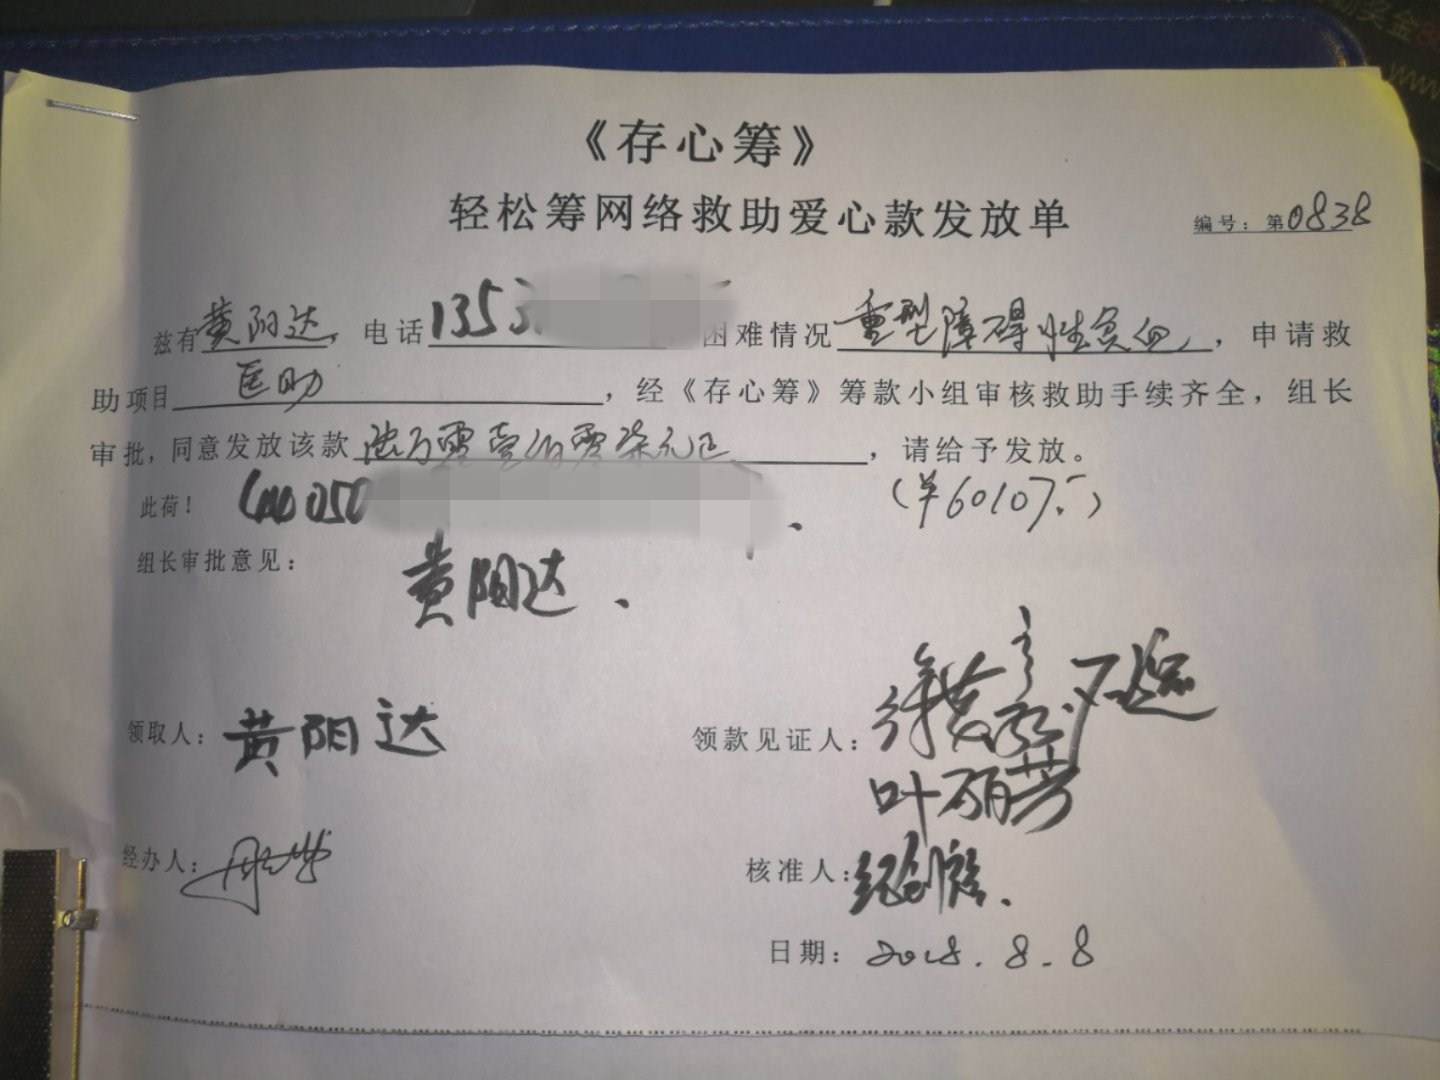 《存心筹》
轻松筹网络救助爱心款发放单
编号：第0838
兹有黄阳达，电话1353 困难情况重型障碍性贫血，申请救
助项目医助，经《存心筹》筹款小组审核救助手续齐全，组长
审批，同意发放该款陆万零壹佰零柒元正，请给予发放。
此荷！ 050 (¥60107.-)
组长审批意见： 黄阳达.
领取人：黄阳达 领款见证人：
叶丽芳
经办人： 核准人：
日期：2018.8.8